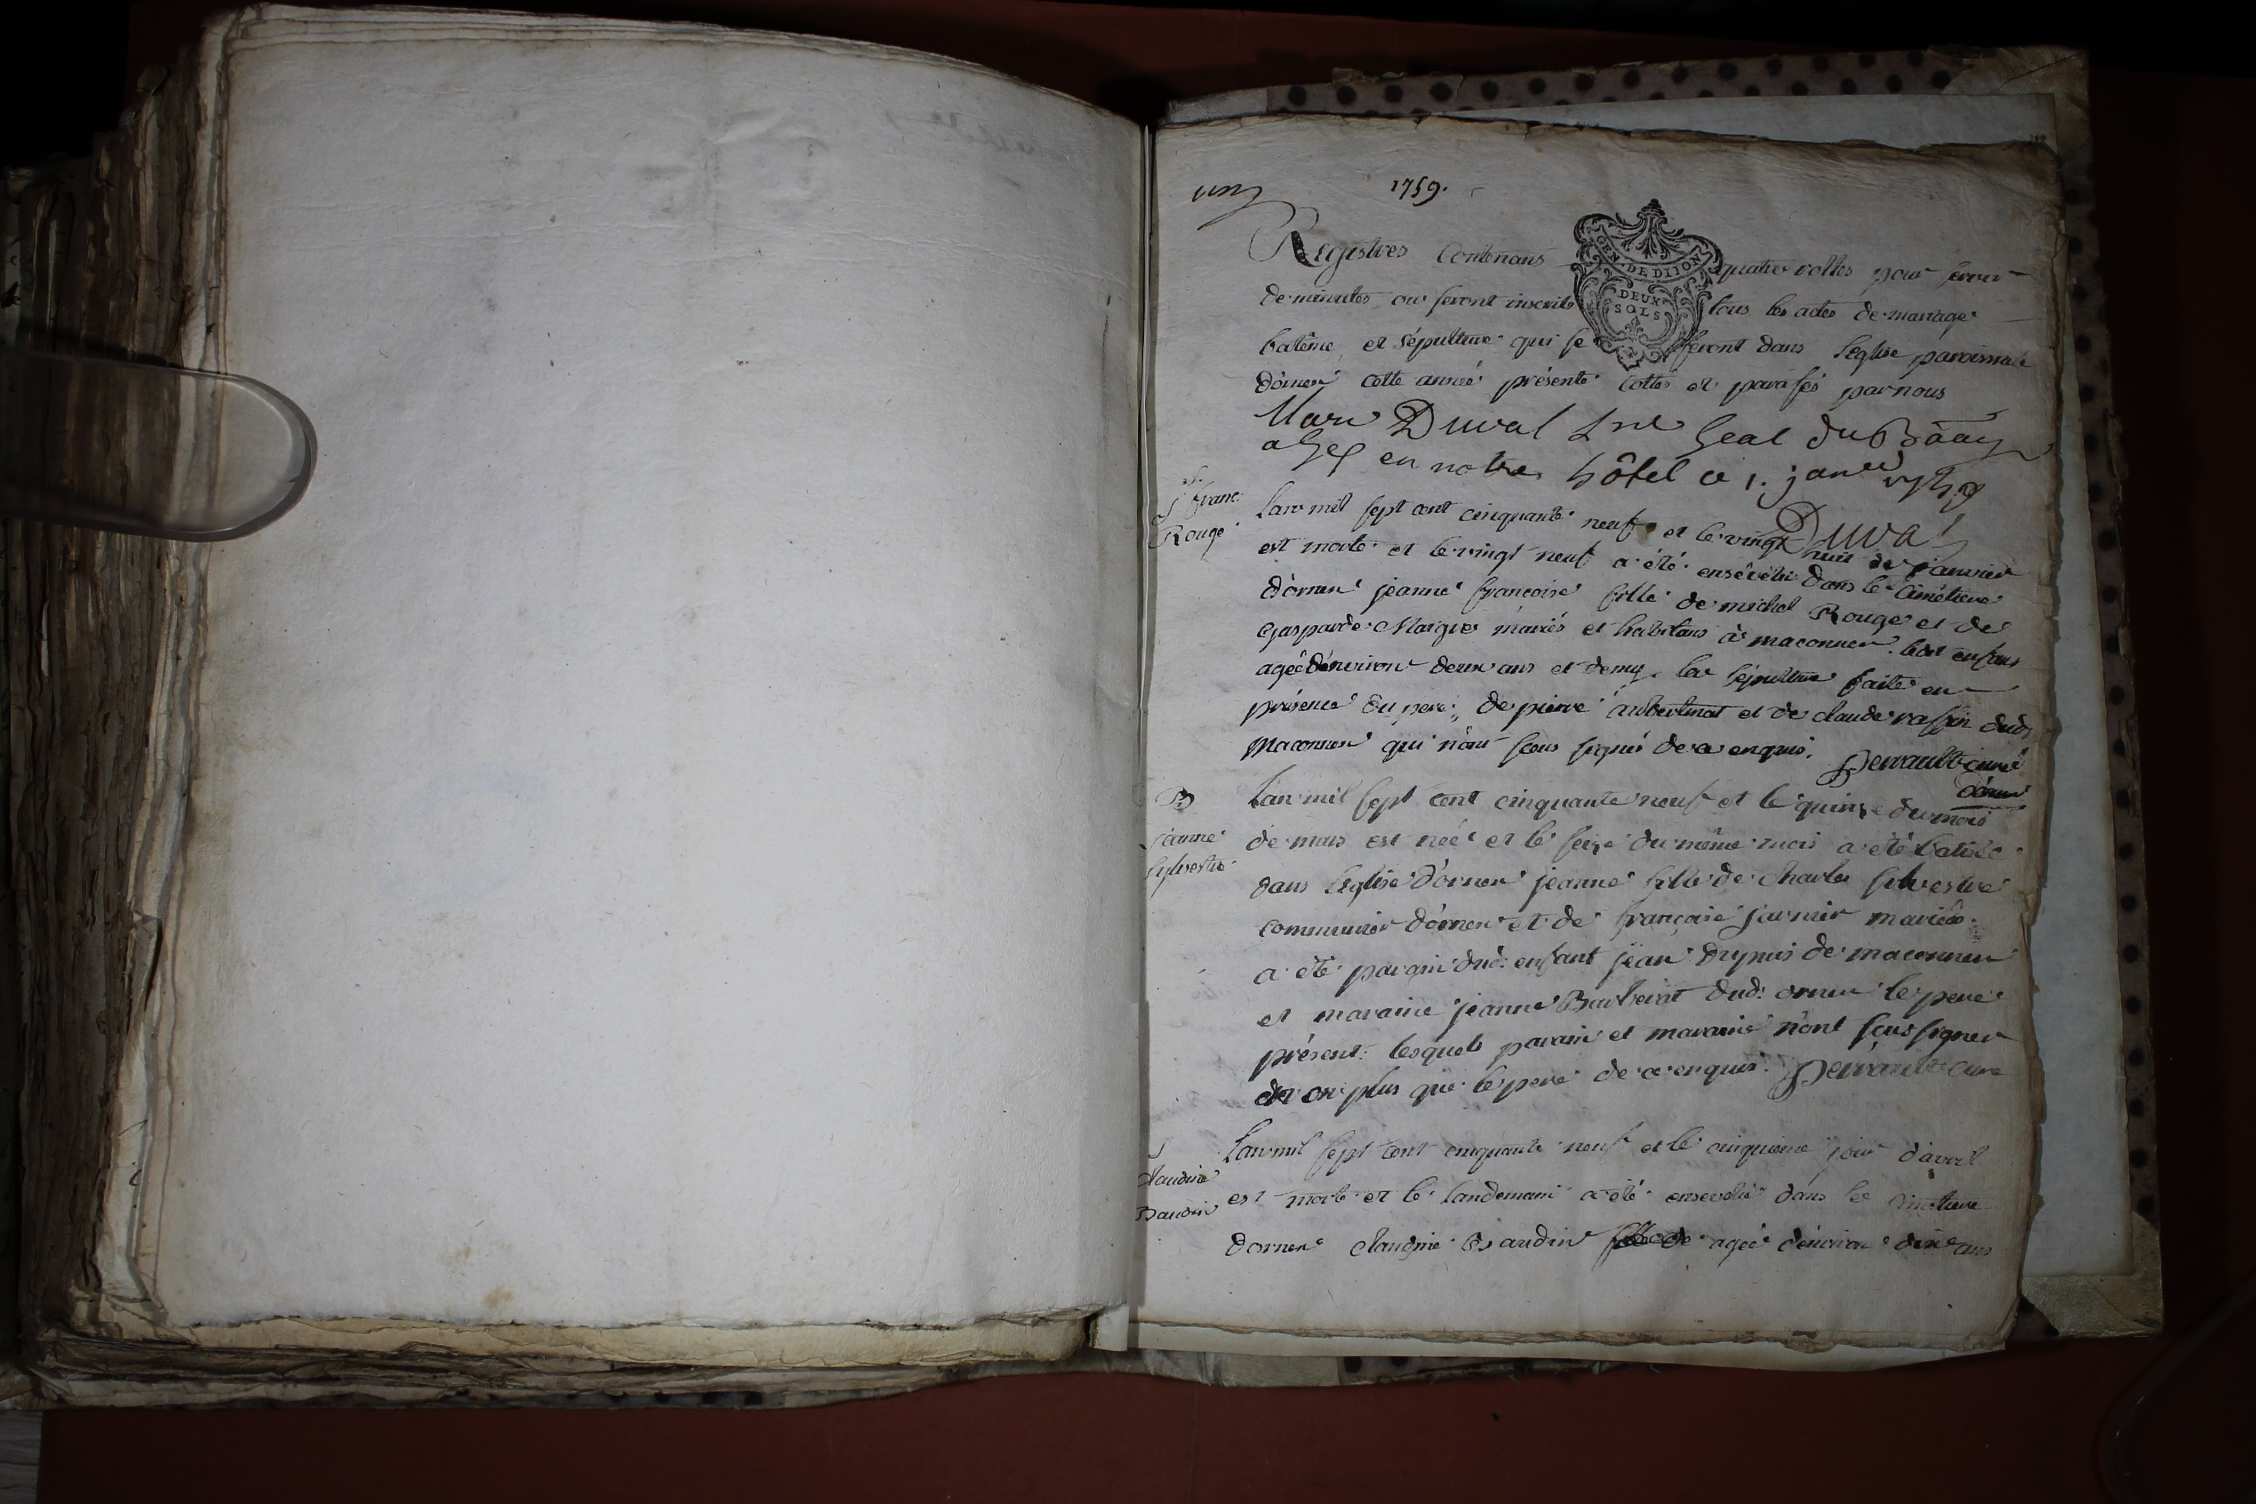 un
1759.
Registres Contenans quatre rolles pour servir
GEN. DE DIJON
DEUX
SOLS
de minutes ou seront inscrits tous les actes de mariage
batême et sépulture qui se feront dans leglise paroissiale
dórnex cette année présente cottés et parafés par nous
Marc Duval Lnt Geal du
a Gex en notre hôtel ce 1. janer 1759
Duval
S
j franc:
Rouge
Lan mil sept cent cinquante neuf et le vingt huit de janvier
est morte et le vingt neuf a été ensévélie dans le Cimétiere
dórnex jeanne françoise fille de michel Rouge et de
Gasparde mariés et habitans à maconnex. led enfant
agée dénviron deux ans et demy. la sépulture faite en
présence du pere, de pierre et de claude dud
Maconnex qui nónt sçus signés de ce enquis. Perrault curé
dórnex
B
jeanne
sylvestre
Lan mil sept cent cinquante neuf et le quinze du mois
de mars est née et le seize du même mois a été batisée
dans leglise dórnex jeanne fille de Charles silvestre
communier dórnex et de françoise mariés.
a été parain dud: enfant jean de maconnex
et maraine jeanne dud: ornex le pere
présent. lesquels parain et maraine nónt sçus signer
non plus que le pere de ce enquis. Perrault cure
S
claudine
Baudin
Lan mil sept cent cinquante neuf et le cinquième jour dávril
est morte et le landemain a été ensevelie dans le cimetiere
dornex claudine Baudin fille de agée dénviron ans